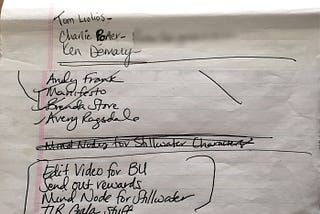 Tom Liolios-
Charlie Porter-
Ken Demary-
Andy Frank
Manifesto
Brenda Store
Avery Ragsdale
Mind Notes for Stillwater Characters
Edit Video for BU
Send out rewards
Mind Node for Stillwater
Gala stuff